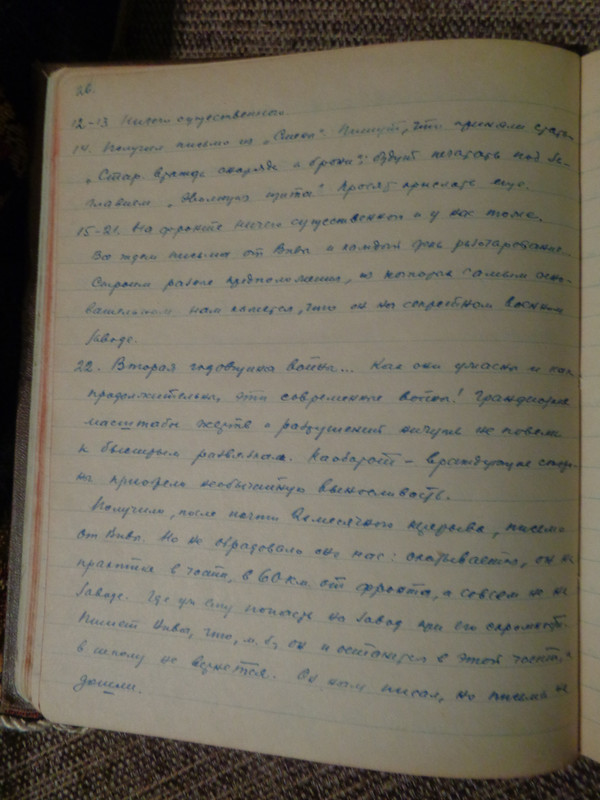 26.
12-13 Ничего существенного.
14. Получил письмо из „Смены“. Пишут, что приняли статью
„Стар. вражде снаряда и брони“; будут печатать под за-
главием „Эволюция щита“. Просят прислать еще.
15-21. На фронте ничего существенного и у нас тоже.
Все ждем письма от Вивы и каждый день разочарование.
Строим разные предположения, из которых самым осно-
вательным нам кажется, что он на секретном военном
заводе.
22. Вторая годовщина войны... Как они ужасны и как
продолжительны, эти современные войны! Грандиозные
масштабы жертв и разрушений ничуть не повели
к быстрым развязкам. Наоборот – враждующие сторо-
ны приобрели необычайную выносливость.
Получили, после почти 2х месячного перерыва, письмо
от Вивы. Но не обрадовало оно нас: оказывается, он на
практике в части, в 60 км. от фронта, а совсем не на
заводе. Где уж ему попасть на завод при его скромности.
Пишет Вива, что, м.б., он и останется в этой части, а
в школу не вернется. Он нам писал, но письма не
дошли.